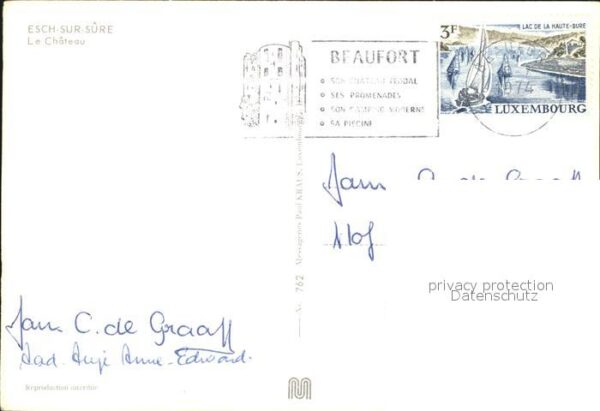 ESCH-SUR-SÛRE
Le Château
BEAUFORT
SON CHATEAU FEODAL
SES PROMENADES
SON CAMPING MODERNE
SA PISCINE
3F
LAC DE LA HAUTE-SURE
LUXEMBOURG
Fam C. de Graaff
privacy protection
Datenschutz
Nr. 762 Messageries Paul KRAUS, Luxembourg
Fam C. de Graaff
Aad. Anje Anne-Edward.
Reproduction interdite